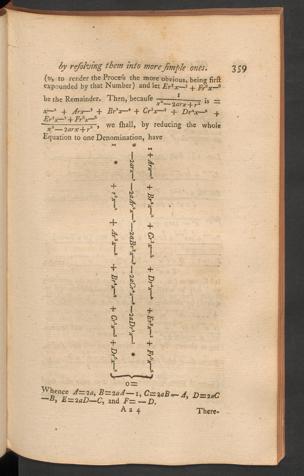 by resolving them into more simple ones. 359
(v, to render the Process the more obvious, being first
expounded by that Number) and let Er⁵x⁻⁵ + Fr⁶x⁻⁶
be the Remainder. Then, because 1/(x² — 2arx + r²) is =
x⁻² + Arx⁻³ + Br²x⁻⁴ + Cr³x⁻⁵ + Dr⁴x⁻⁶ +
(Er⁵x⁻⁵ + Fr⁶x⁻⁶)/(x² — 2arx + r²), we shall, by reducing the whole
Equation to one Denomination, have
= 0
Whence A=2a, B=2aA—1, C=2aB—A, D=2aC
—B, E=2aD—C, and F=—D.
A a 4 There-